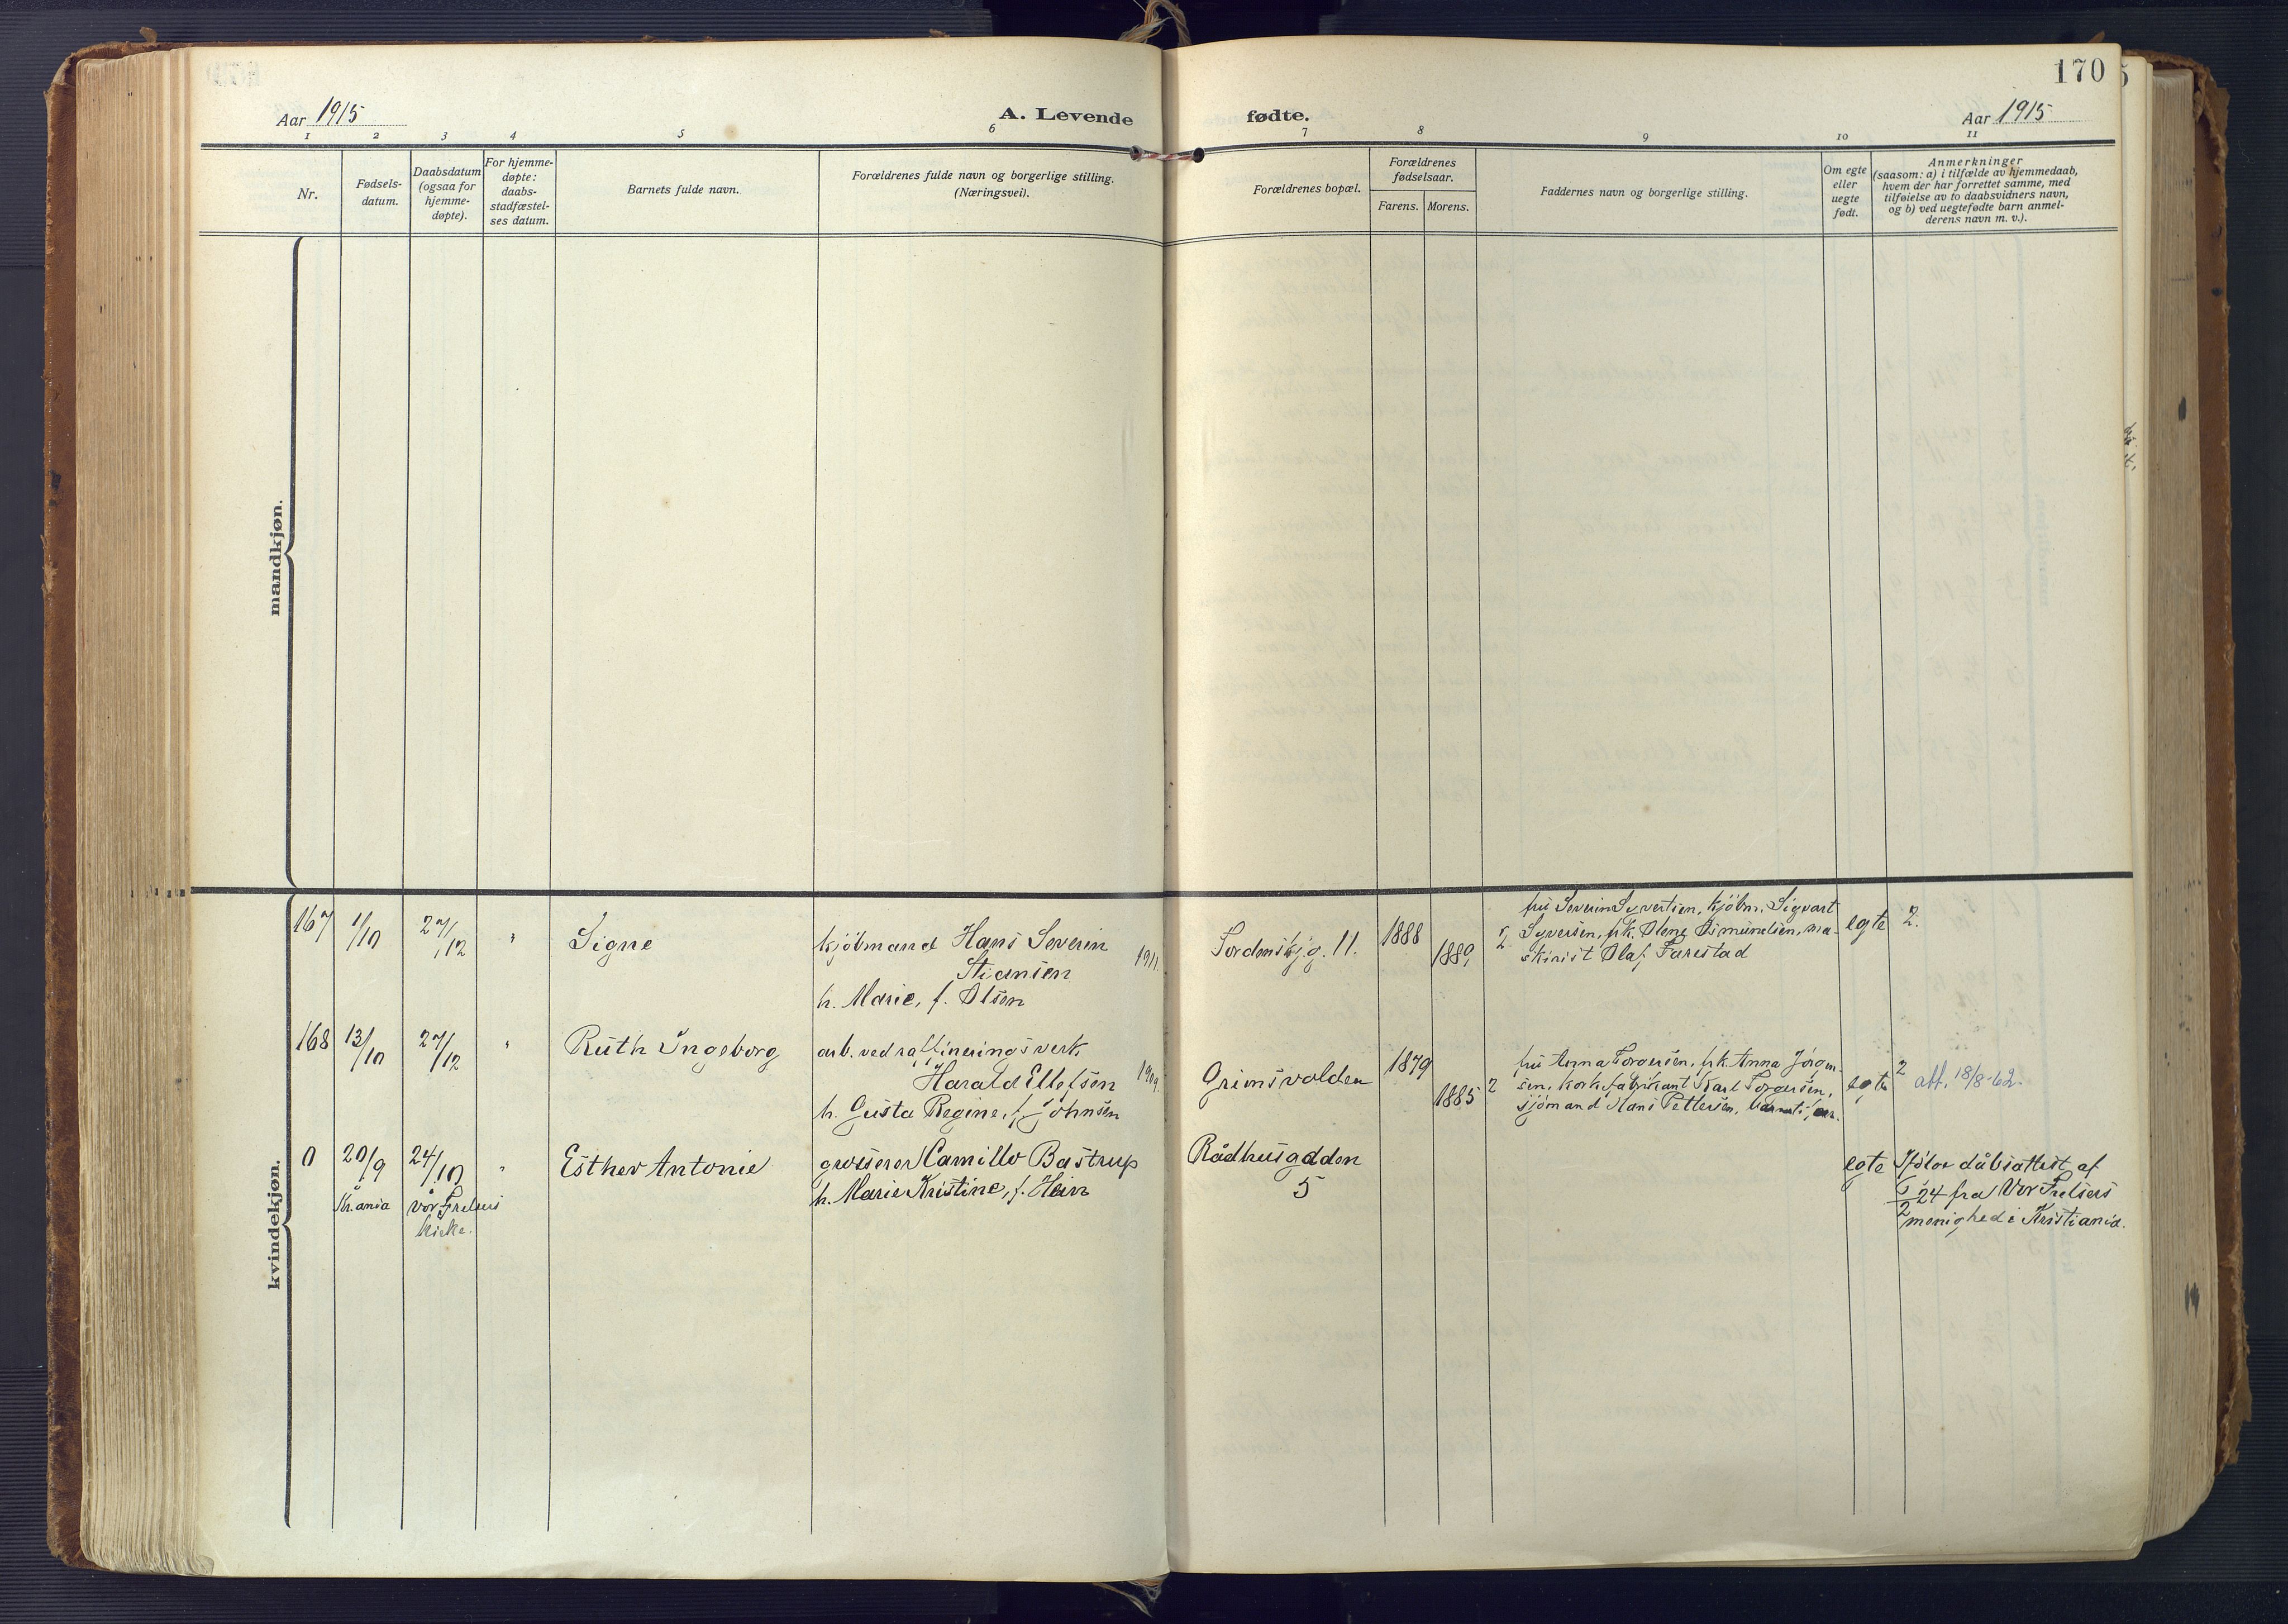 170
Aar 1915
A. Levende fødte.
Aar 1915
1 2 3 4 5 6 7 8 9 10 11
Nr.
Fødsels-
datum.
Daabsdatum
(ogsaa for
hjemme-
døpte).
For hjemme-
døpte:
daabs-
stadfæstel-
ses datum.
Barnets fulde navn.
Forældrenes fulde navn og borgerlige stilling.
(Næringsvei).
Forældrenes bopæl.
Forældrenes
fødselsaar.
Farens. Morens.
Faddernes navn og borgerlige stilling.
Om egte
eller
uegte
født.
Anmerkninger
(saasom: a) i tilfælde av hjemmedaab,
hvem der har forrettet samme, med
tilføielse av to daabsvidners navn,
og b) ved uegtefødte barn anmel-
derens navn m. v.).
mandkjøn.
kvindekjøn.
167
1/10
27/12
"
Signe
kjöbmand Hans Severin
Stiansen
h. Marie, f. Olsen
1911.
Tordenskj.g. 11.
1888
1889
2
fru Severin Syvertsen, kjöbm. Sigvart
Syversen, frk. Olene Simunelsen, ma-
skinist Olaf Farestad
egte
2.
168
13/10
27/12
"
Ruth Ingeborg
arb. ved raffineringsverk
Harald Ellefsen
h. Gusta Regine, f. Johnsen
1909
Grimsvolden
1879
1885
2
fru Anna Torgersen, frk. Anna Jörgen-
sen, korkfabrikant Karl Torgersen,
sjömand Hans Pettersen,
egte
2
att. 18/8-62.
0
20/9
Kr.ania
24/10
vår Frelsers
kirke.
"
Esther Antonie
grosserer Camillo Bastrup
h. Marie Kristine, f. Hein
Rådhusgaden
5
egte
Ifölge dåbsattest af
24 fra Vor Frelsers
menighed i Kristiania.